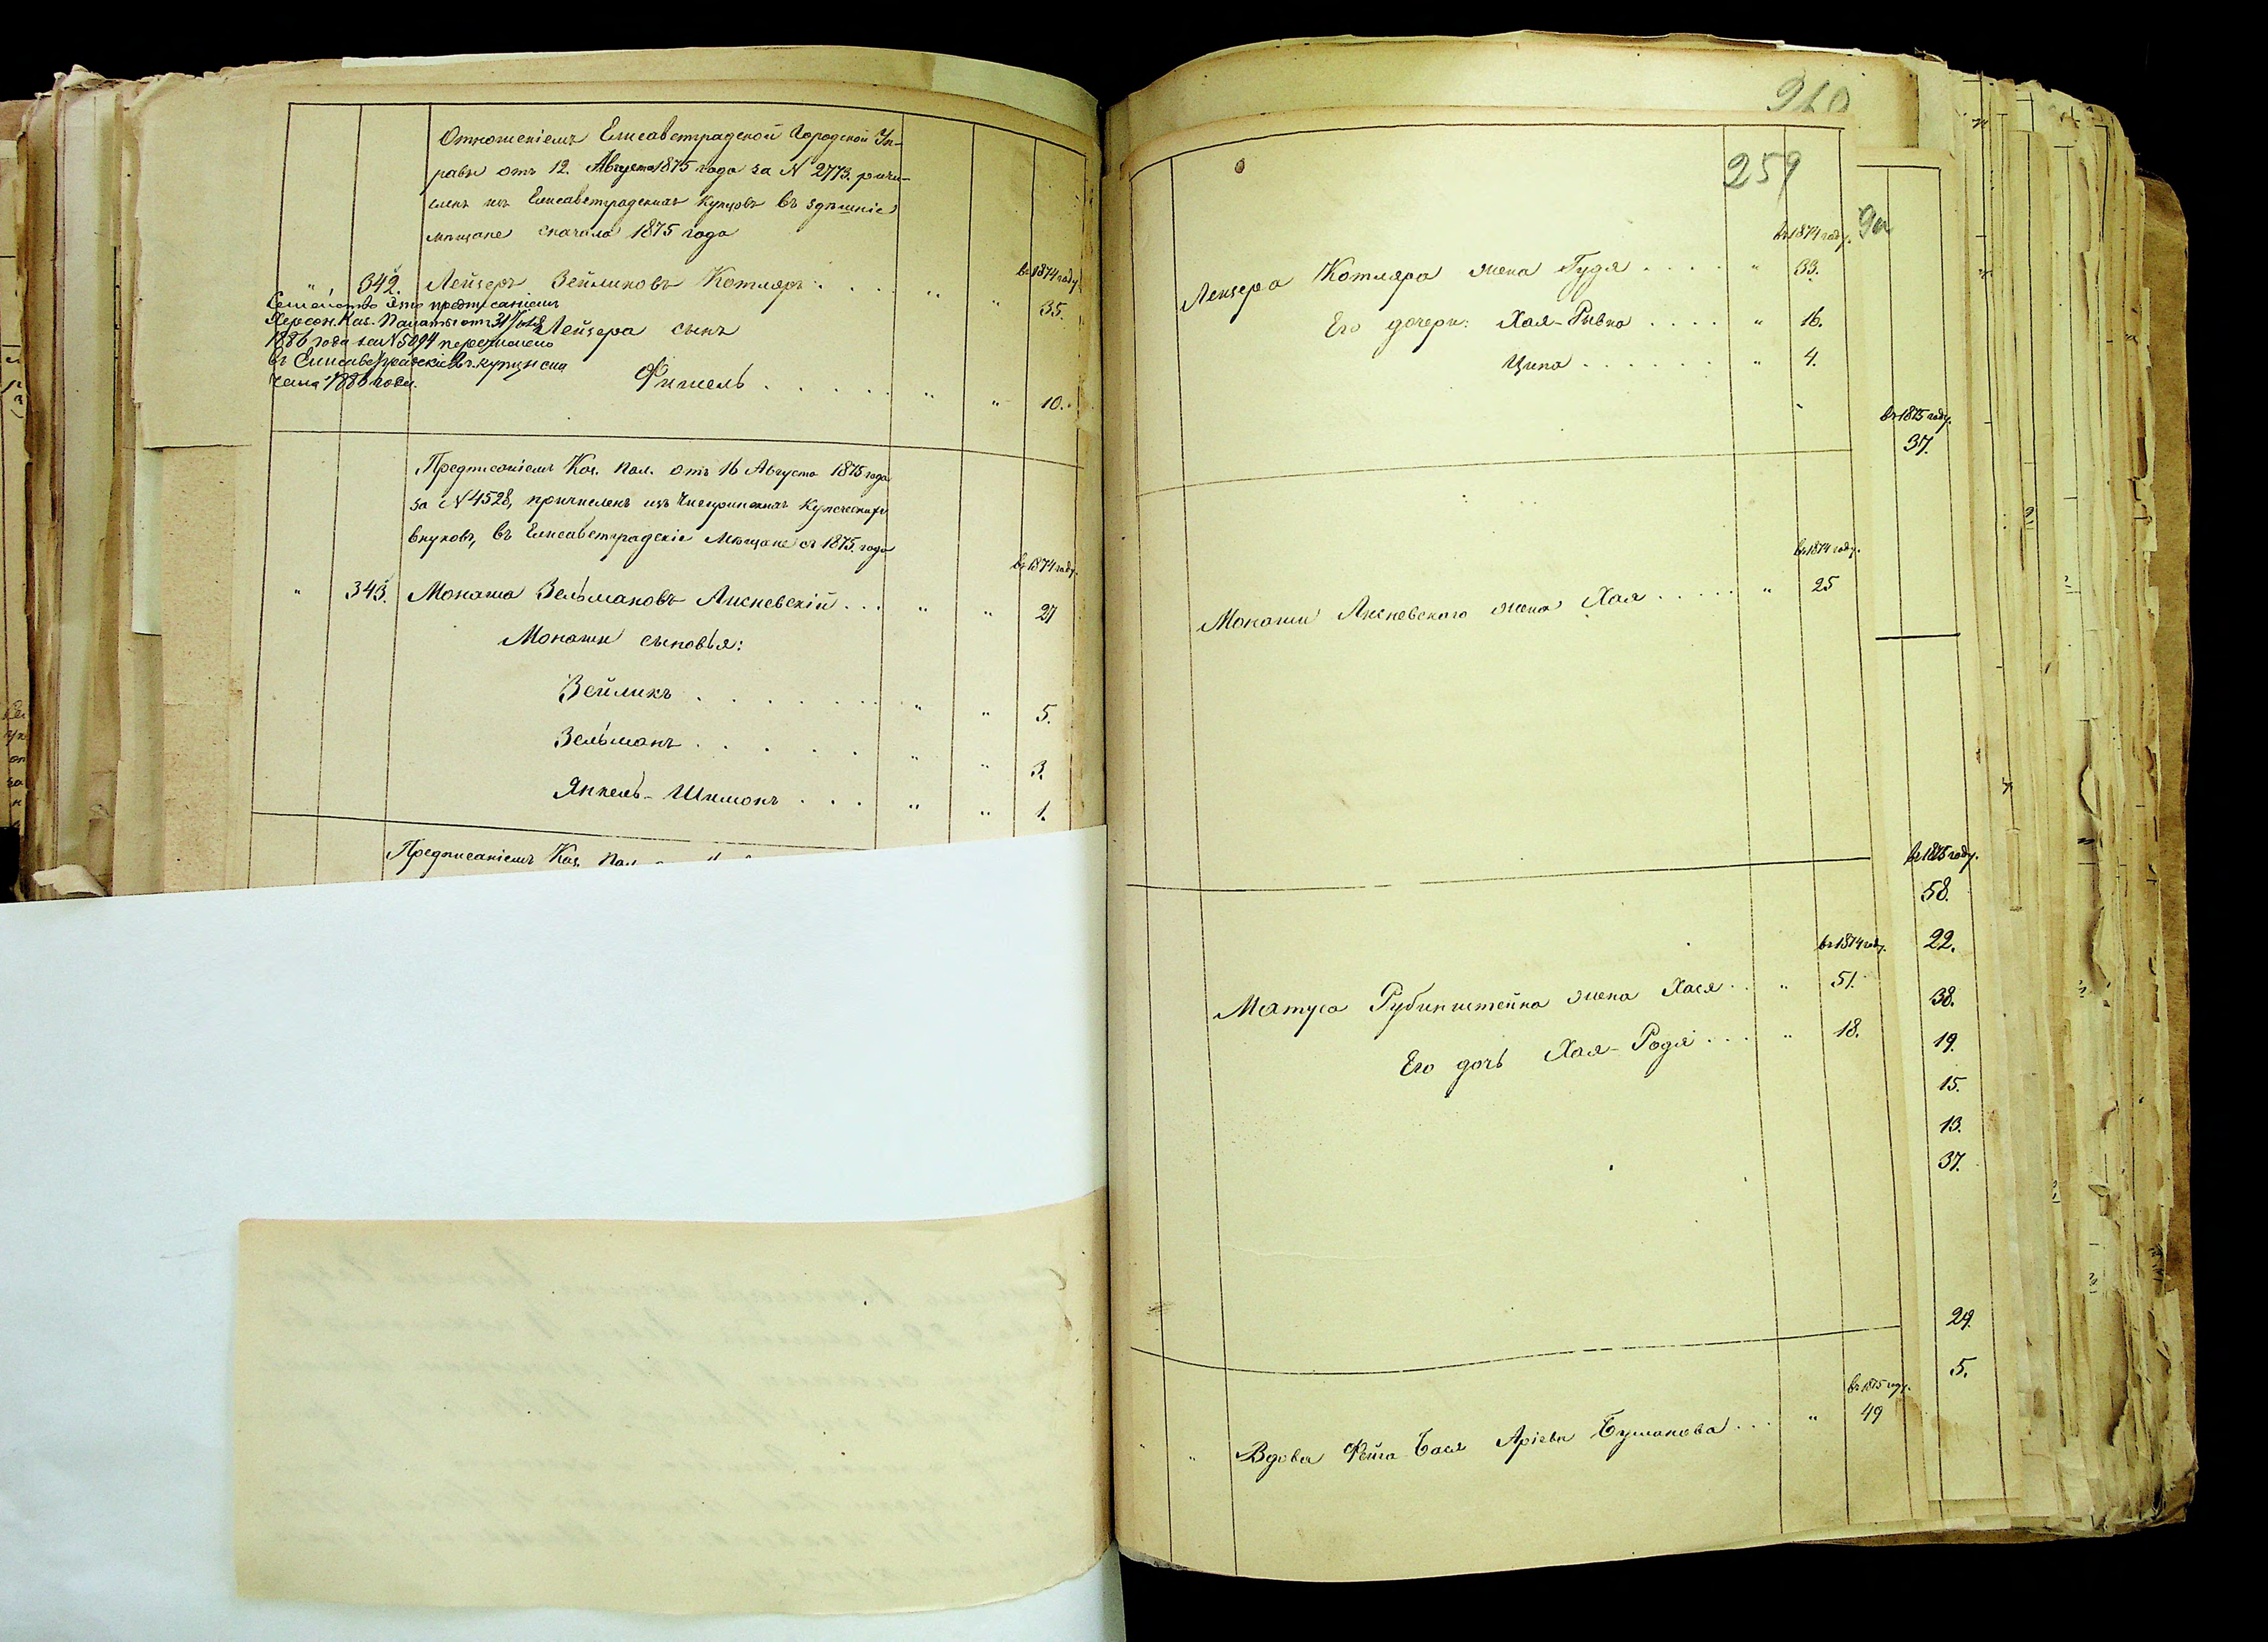 Отношеніемъ Елисаветградской Городской Уп-
равы отъ 12. Августа 1875 года за N 2773. причи-
сленъ изъ Елисаветградскихъ купцовъ въ здѣшніе
мѣщане сначала 1875 года
въ 1874 году
" 342. Лейзеръ Зейликовъ Котляръ . . . . " " 35.
Семейство это предписаніемъ
Херсон. Каз. Палаты отъ 31 Іюля
1886 года за N 5094 перечислено
въ Елисаветградскіе 2 г. купцы съ
чала 1886 года.
Лейзера сынъ
Фишель . . . . . " " 10.
Предписаніемъ Каз. Пал. отъ 16 Августа 1875 года
за N 4528, причисленъ изъ Чигиринскихъ купеческихъ
внуковъ, въ Елисаветградскіе Мѣщане съ 1875 года
въ 1874 году.
" 343. Монаша Зельмановъ Лисневскій . . . " " 27
Монаши сыновья:
Зейликъ . . . . . . " " 5.
Зельманъ . . . . . " " 3.
Янкель-Шимонъ . . . " " 1.
Предписаніемъ Каз. Пал.
260
259
въ 1874 году.
Лейзера Котляра жена Гудя . . . . " 33.
Его дочери: Хая-Рывка . . . . " 16.
Ципа . . . . . . . " 4.
въ 1875 году.
37.
въ 1874 году.
Монаши Лисневскаго жена Хая . . . . . " 25
въ 1875 году.
58.
22.
38.
19.
15.
13.
37.
29.
5.
въ 1874 году.
Матуса Рубинштейна жена Хася . . " 51.
Его дочь Хая-Родя . . . " 18.
въ 1875 году.
" " Вдова Фейга Бася Аріева Бушакова . . . " 49